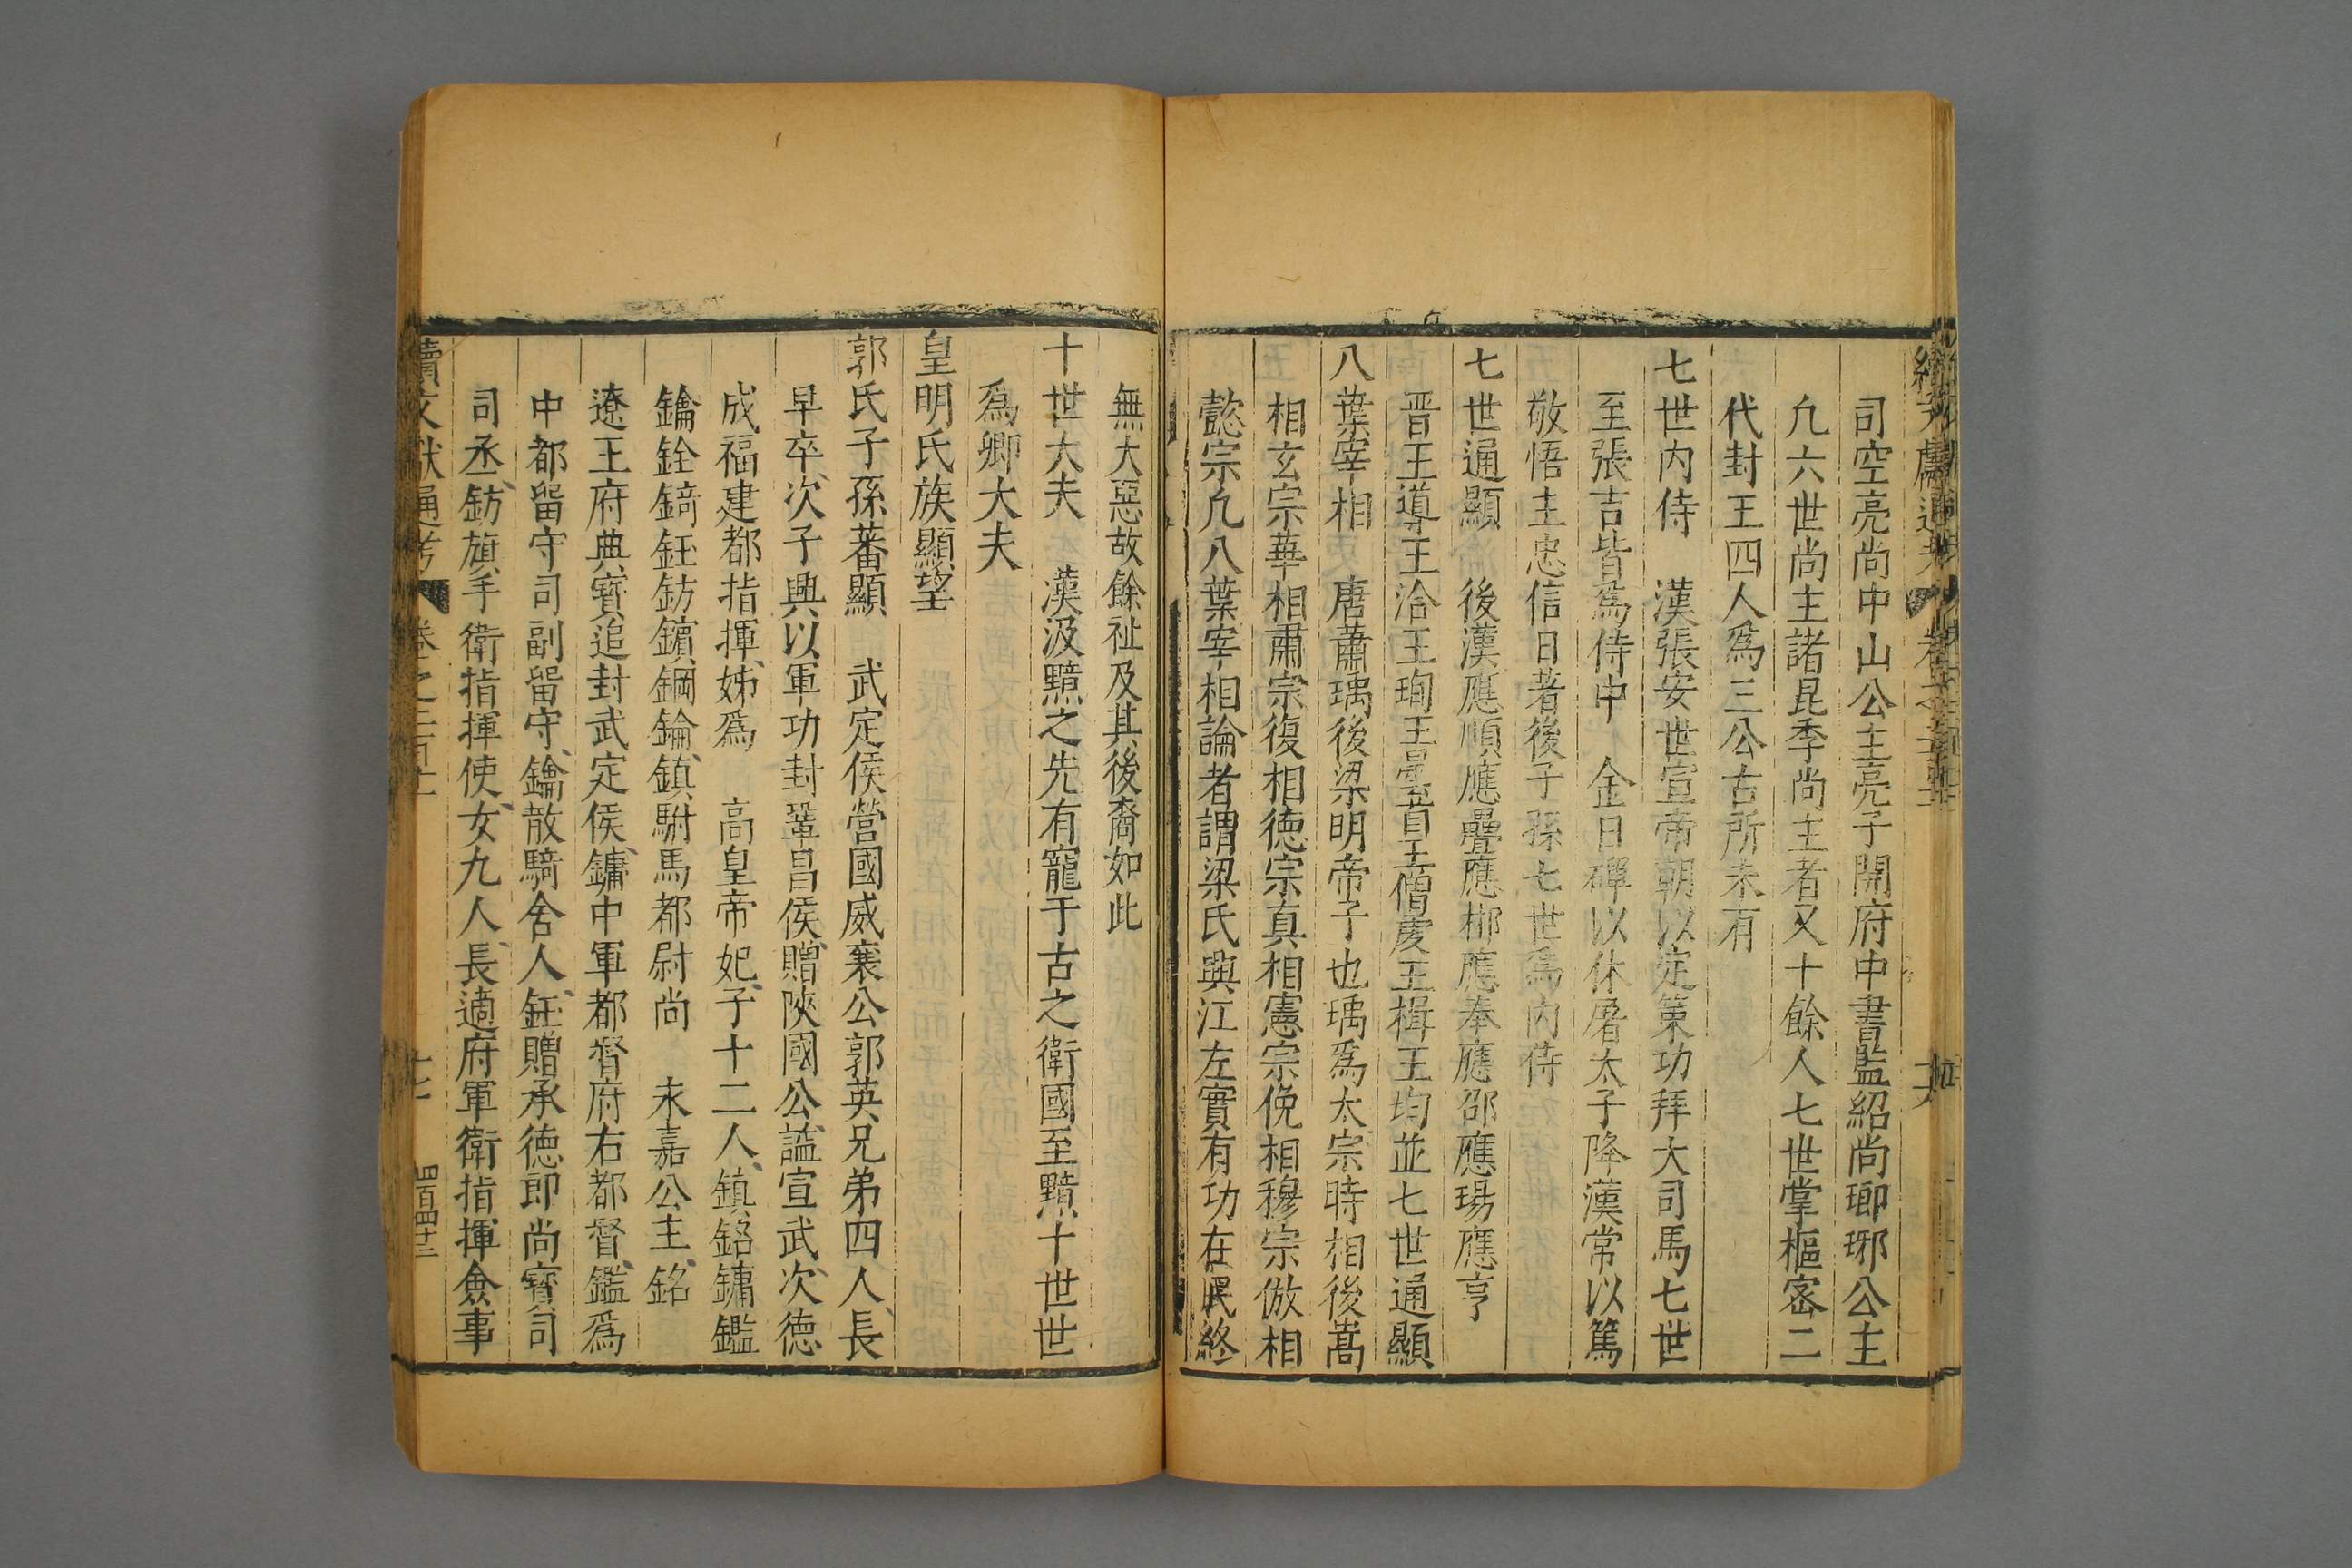 司空亮尚中山公主亮子開府中書監紹尚瑯琊公主
凢六世尚主諸昆季尚主者又十餘人七世掌樞宻二
代封王四人爲三公古所未有
七世内侍　漢張安世宣帝朝以定策功拜大司馬七世
至張吉皆爲侍中　金日磾以休屠太子降漢常以篤
敬悟主忠信日著後子孫七世爲内侍
七世通顯　後漢應順應疊應郴應奉應邵應瑒應亨
晋王導王洽王珣王曇首王僧虔王楫王均並七世通顯
八葉宰相　唐蕭瑀後梁明帝子也瑀爲太宗時相後嵩
相玄宗華相肅宗復相德宗真相憲宗俛相穆宗倣相
懿宗凢八葉宰相論者謂梁氏與江左實有功在民終
無大惡故餘祉及其後裔如此
十世大夫　漢汲黯之先有寵于古之衛國至黯十世世
爲卿大夫
皇明氏族顯望
郭氏子孫蕃顯　武定侯營國威襄公郭英兄弟四人長
早卒次子興以軍功封鞏昌侯贈陝國公謚宣武次德
成福建都指揮姊爲　高皇帝妃子十二人鎮銘鏞鑑
鑰銓錡鈺鈁鑌鋼錀鎮駙馬都尉尚　永嘉公主銘
遼王府典寶追封武定侯鏞中軍都督府右都督鑑爲
中都留守司副留守鑰散騎舍人鈺贈承德郎尚寳司
司丞鈁旗手衛指揮使女九人長適府軍衛指揮僉事
續文獻通考　卷之二百十　十七　四百四十三